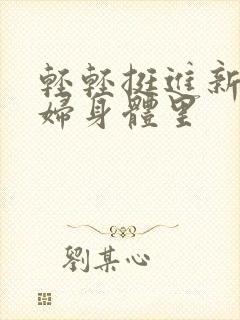 輕輕挺進新
婦身體里
劉某心